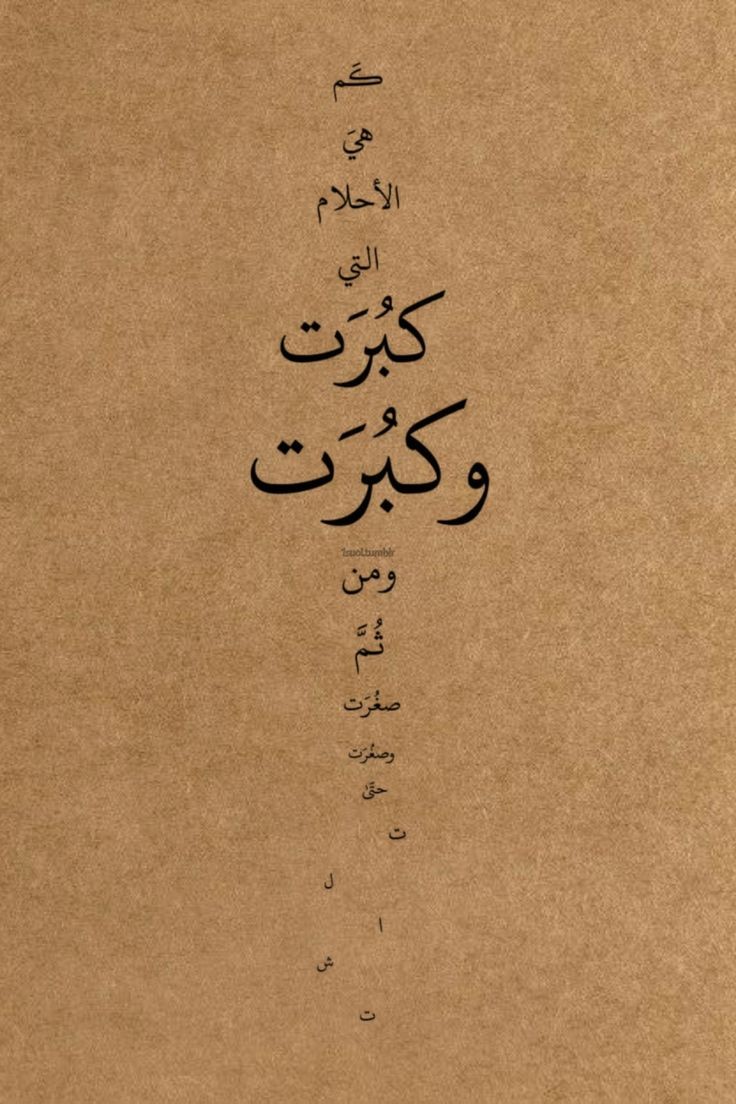 كَم
هيَ
الأحلام
التي
كبُرَت
وكبُرَت
1suol.tumblr
ومن
ثُمَّ
صغُرَت
وصغُرَت
حتَّى
ت
ل
ا
ش
ت